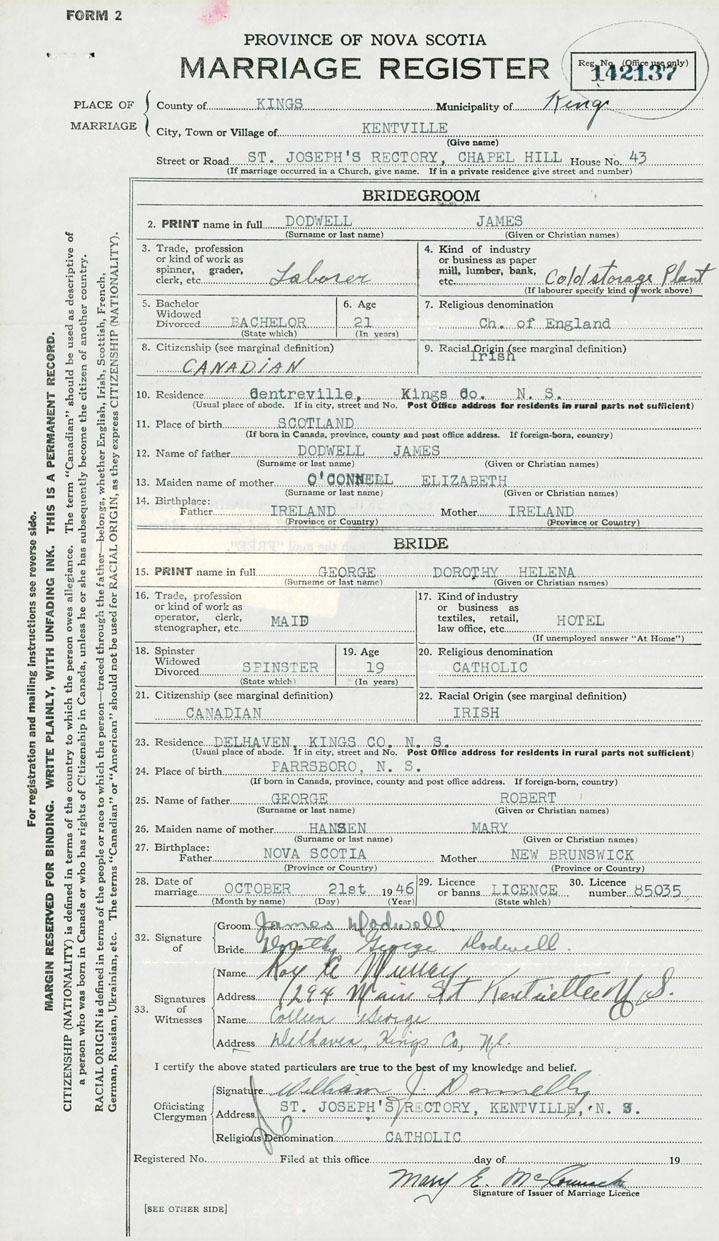 FORM 2
PROVINCE OF NOVA SCOTIA
MARRIAGE REGISTER
Reg. No. (Office use only)
142137
PLACE OF MARRIAGE
County of KINGS Municipality of Kings
City, Town or Village of KENTVILLE
(Give name)
Street or Road ST. JOSEPH'S RECTORY, CHAPEL HILL House No. 43
(If marriage occurred in a Church, give name. If in a private residence give street and number)
BRIDEGROOM
2. PRINT name in full DODWELL JAMES
(Surname or last name) (Given or Christian names)
3. Trade, profession or kind of work as spinner, grader, clerk, etc. Laborer
4. Kind of industry or business as paper mill, lumber, bank, etc. Cold storage Plant
(If labourer specify kind of work above)
5. Bachelor Widowed Divorced BACHELOR
(State which)
6. Age 21
(In years)
7. Religious denomination
Ch. of England
8. Citizenship (see marginal definition)
CANADIAN
9. Racial Origin (see marginal definition)
Irish
10. Residence Centreville, Kings Co. N. S.
(Usual place of abode. If in city, street and No. Post Office address for residents in rural parts not sufficient)
11. Place of birth SCOTLAND
(If born in Canada, province, county and post office address. If foreign-born, country)
12. Name of father DODWELL JAMES
(Surname or last name) (Given or Christian names)
13. Maiden name of mother O'CONNELL ELIZABETH
(Surname or last name) (Given or Christian names)
14. Birthplace:
Father IRELAND Mother IRELAND
(Province or Country) (Province or Country)
BRIDE
15. PRINT name in full GEORGE DOROTHY HELENA
(Surname or last name) (Given or Christian names)
16. Trade, profession or kind of work as operator, clerk, stenographer, etc MAID
17. Kind of industry or business as textiles, retail, law office, etc. HOTEL
(If unemployed answer "At Home")
18. Spinster Widowed Divorced SPINSTER
(State which)
19. Age 19
(In years)
20. Religious denomination
CATHOLIC
21. Citizenship (see marginal definition)
CANADIAN
22. Racial Origin (see marginal definition)
IRISH
23. Residence DELHAVEN, KINGS CO. N. S.
(Usual place of abode. If in city, street and No. Post Office address for residents in rural parts not sufficient)
24. Place of birth PARRSBORO, N. S.
(If born in Canada, province, county and post office address. If foreign-born, country)
25. Name of father GEORGE ROBERT
(Surname or last name) (Given or Christian names)
26. Maiden name of mother HANSEN MARY
(Surname or last name) (Given or Christian names)
27. Birthplace:
Father NOVA SCOTIA Mother NEW BRUNSWICK
(Province or Country) (Province or Country)
28. Date of marriage OCTOBER 21st 1946
(Month by name) (Day) (Year)
29. Licence or banns LICENCE
(State which)
30. Licence number 85035
32. Signature of
Groom James Dodwell
Bride Dorothy George Dodwell.
33. Signatures of Witnesses
Name Roy Murray
Address 1294 Main St Kentville N. S.
Name Colleen George
Address Delhaven, Kings Co, N.S.
I certify the above stated particulars are true to the best of my knowledge and belief.
Officiating Clergyman
Signature William J. Donnelly
Address ST. JOSEPH'S RECTORY, KENTVILLE, N. S.
Religious Denomination CATHOLIC
Registered No. Filed at this office day of 19
Mary E. McCormack
Signature of Issuer of Marriage Licence
[SEE OTHER SIDE]
For registration and mailing instructions see reverse side.
MARGIN RESERVED FOR BINDING. WRITE PLAINLY, WITH UNFADING INK. THIS IS A PERMANENT RECORD.
CITIZENSHIP (NATIONALITY) is defined in terms of the country to which the person owes allegiance. The term "Canadian" should be used as descriptive of
a person who was born in Canada or who has rights of Citizenship in Canada, unless he or she has subsequently become the citizen of another country.
RACIAL ORIGIN is defined in terms of the people or race to which the person—traced through the father—belongs, whether English, Irish, Scottish, French,
German, Russian, Ukrainian, etc. The terms "Canadian" or "American" should not be used for RACIAL ORIGIN, as they express CITIZENSHIP (NATIONALITY).